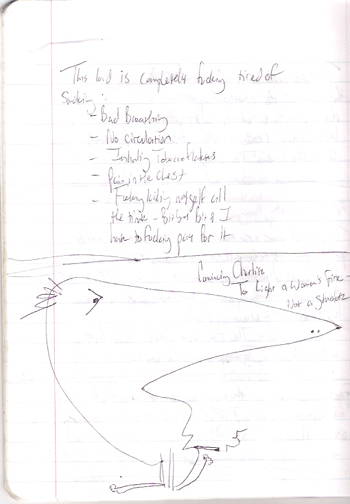 This bird is completely fucking tired of
Smoking:
- Bad Breathing
- No circulation
- Inhaling Tobacco flakes
- Pain in the Chest
- Fucking killing myself all
the time - & I
have to fucking pay for it
Convincing Charlize
To Light a Woman's Fire
Not a